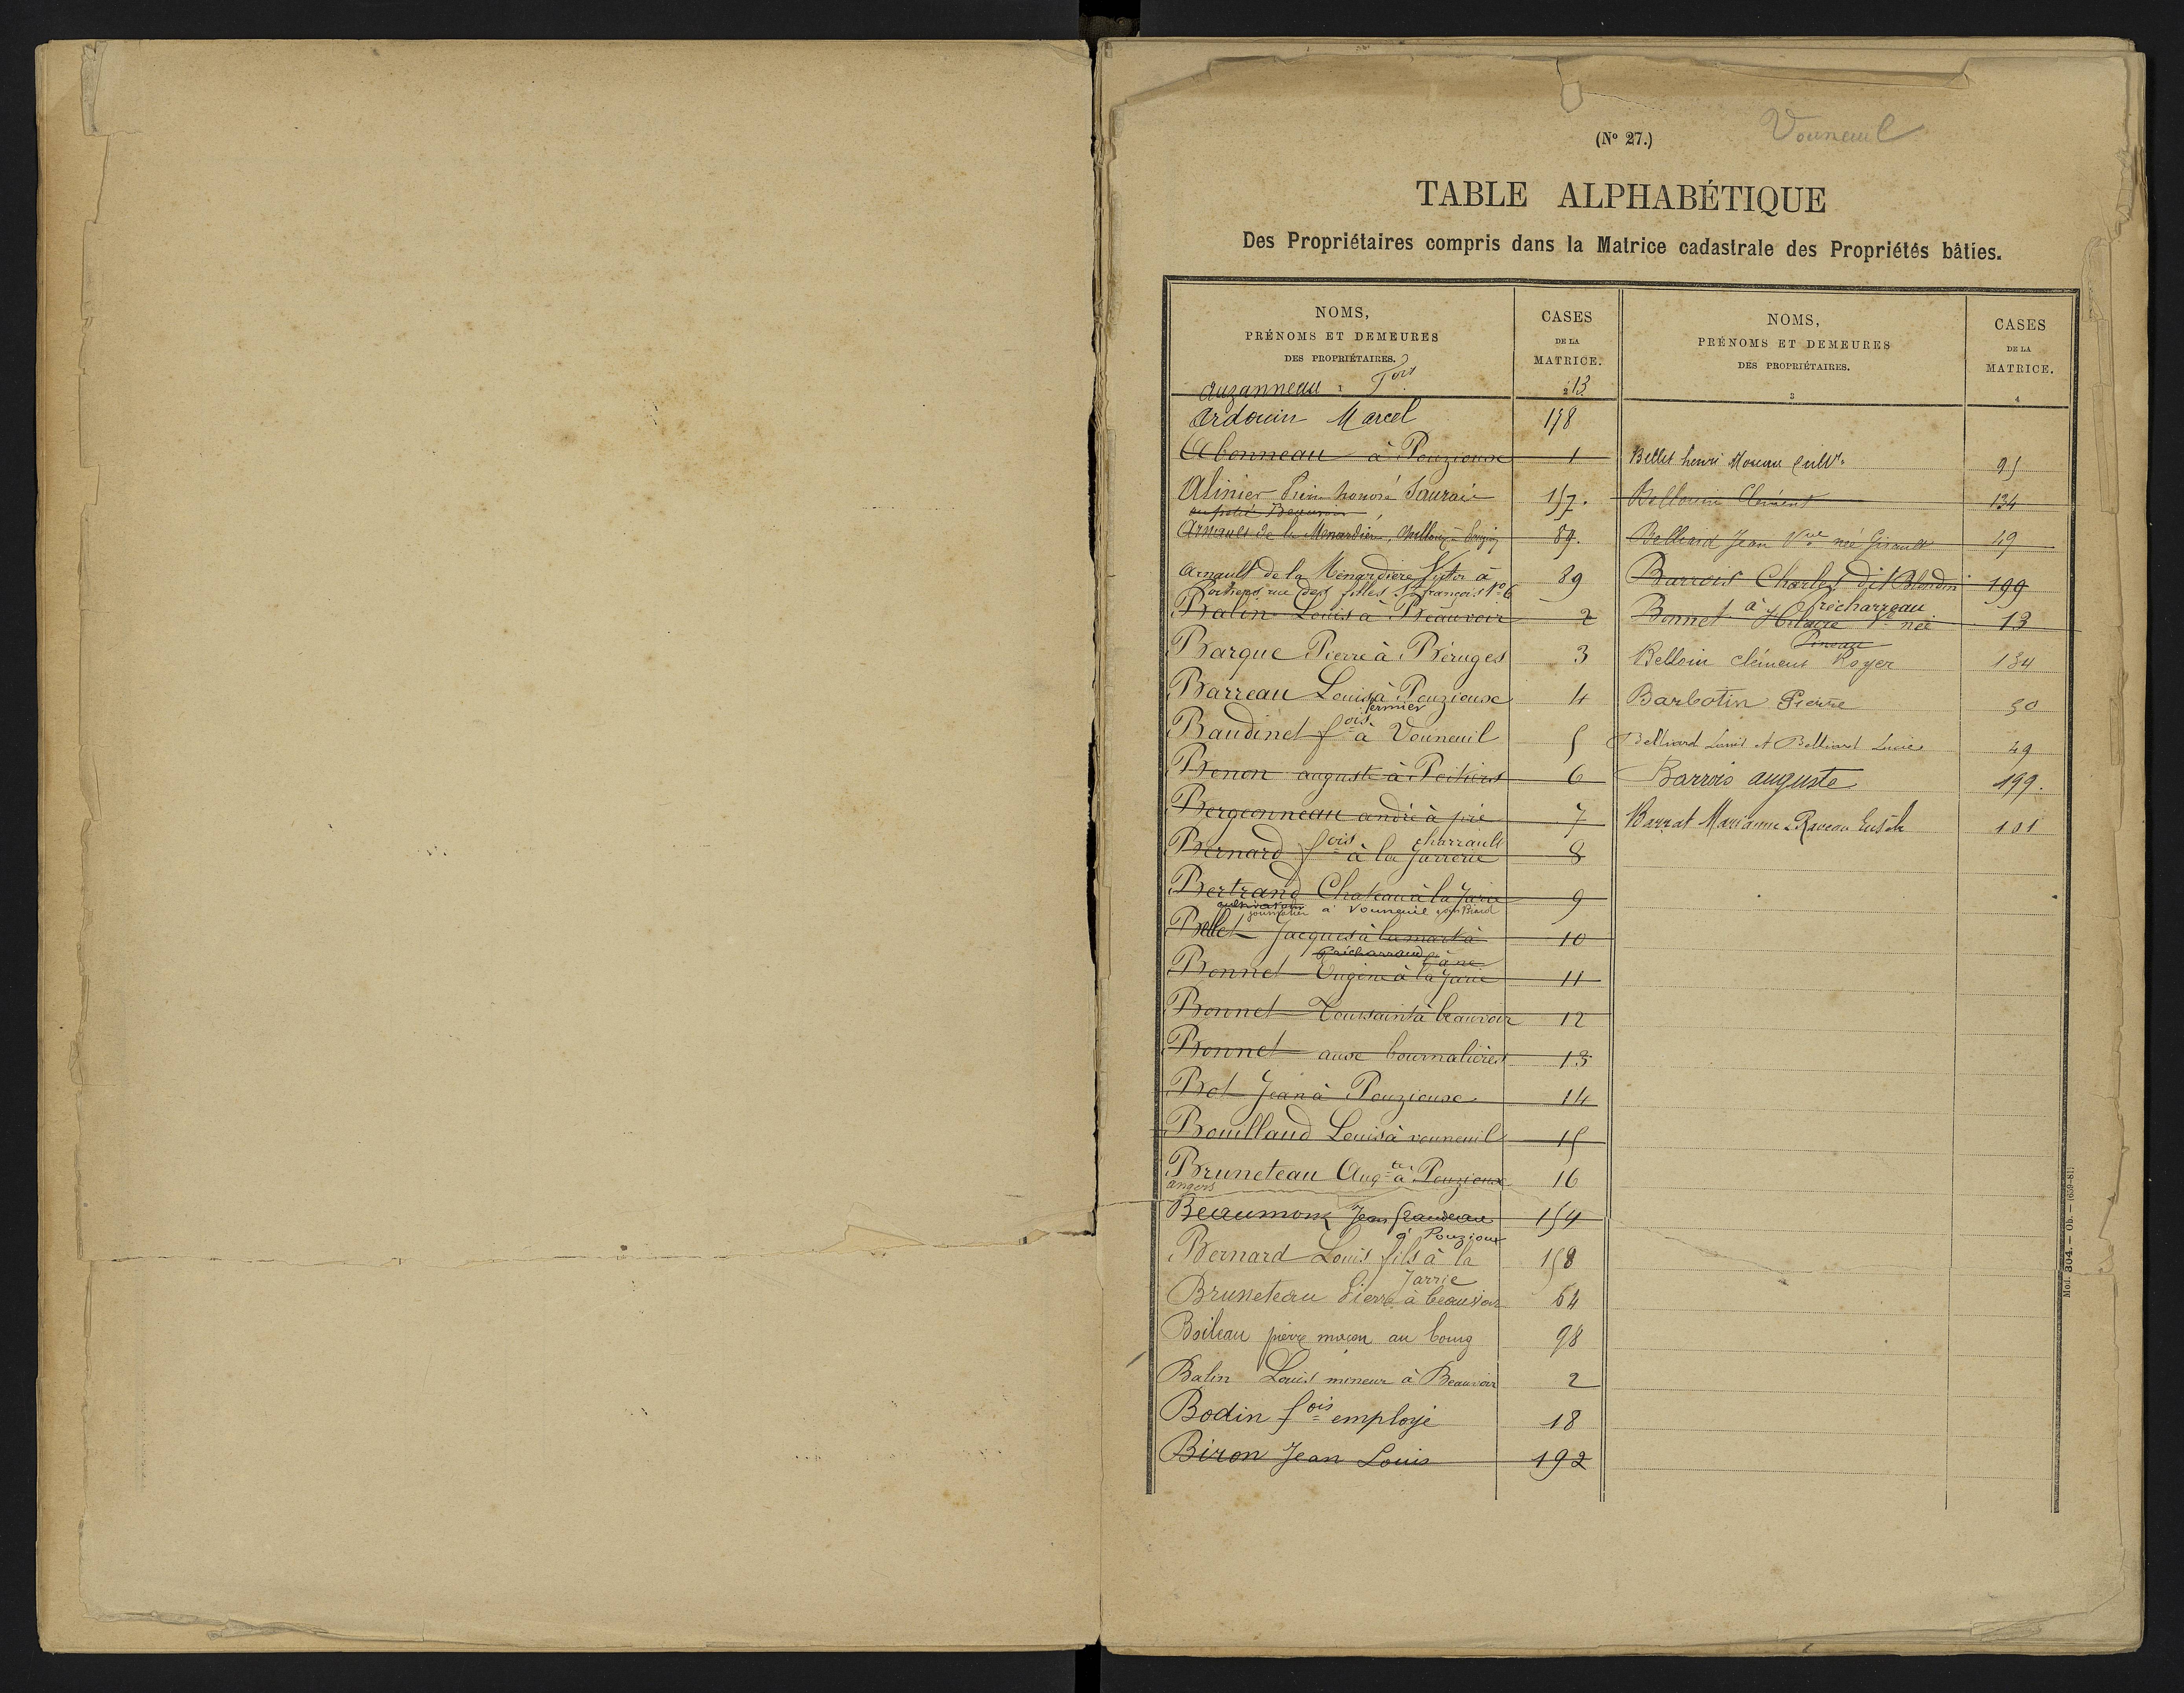 (Nº 27.)
Vouneuil
TABLE ALPHABÉTIQUE
Des Propriétaires compris dans la Matrice cadastrale des Propriétés bâties.
NOMS,
PRÉNOMS ET DEMEURES
DES PROPRIÉTAIRES.
CASES
DE LA
MATRICE.
Auzanneau Fois 13
2
Ardouin Marcel 198
Abonneau à Pouzioux 1
Alinier honoré 157.
Beauvoir
Arnault de la Menardière, 89.
Arnault de la Ménardière Victor à 89
Poitiers rue des filles St françois Nº 6
Balin Louis à Beauvoir 2
Barque Pierre à Béruges 3
Barreau Louis à Pouzioux 4
fermier
Baudinet fois à Vouneuil 5
Benon auguste à Poitiers 6
Bergeonneau andré à 7
charrault
Bernard fois à la Jarrerie 8
Bertrand Chateau à la Jarie 9
cultivateur
journalier à Vouneuil sous Biard
Bellet Jacques à 10
Bonnet Eugène à la Jarie 11
Bonnet Toussaint à beauvoir 12
Bonnet aux bournalières 13
Bot Jean à Pouzioux 14
Bouillaud Louis à vouneuil 15
Bruneteau Augte à Pouzioux 16
angers
Beaumont Jean 154
à Pouzioux
Bernard Louis fils à la 158
Jarrie
Bruneteau Pierre à beauvoir 64
Boileau pierre maçon au bourg 98
Balin Louis mineur à Beauvoir 2
Bodin fois employé 18
Biron Jean Louis 192
NOMS,
PRÉNOMS ET DEMEURES
DES PROPRIÉTAIRES.
CASES
DE LA
MATRICE.
3
4
Bellet henri Moreau cultr. 95
Bellouin Clément 134
Belliard Jean Vve née Girault 49
Barrois Charles dit Blondin 199
à précharreau
Bonnet Hilaire Ve née 13
Pineau
Belloin clément Royer 134
Barbotin Pierre 50
Belliard Louis et Belliard Lucie 49
Barrois auguste 199.
Barrat Marianne Raveau 101
Mod. 304. — Ob. — (659-81)